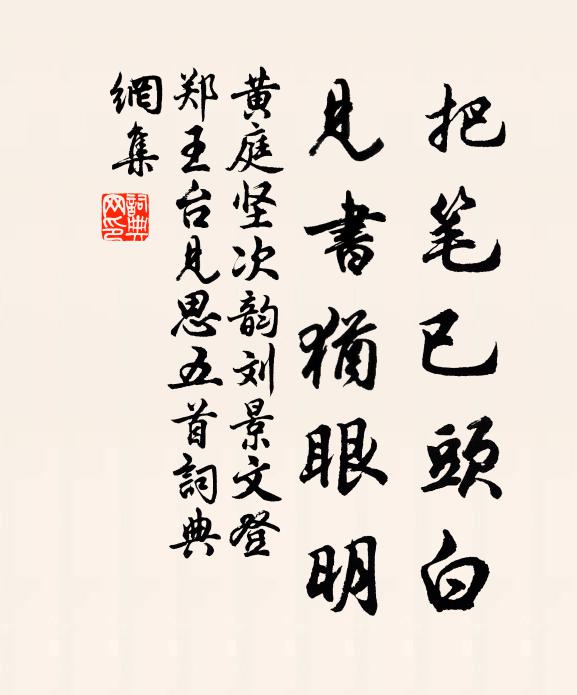 把笔已頭白
見書猶眼明
黄庭坚次韵刘景文登
郑王台見思五首詞典
網集
詞典网印